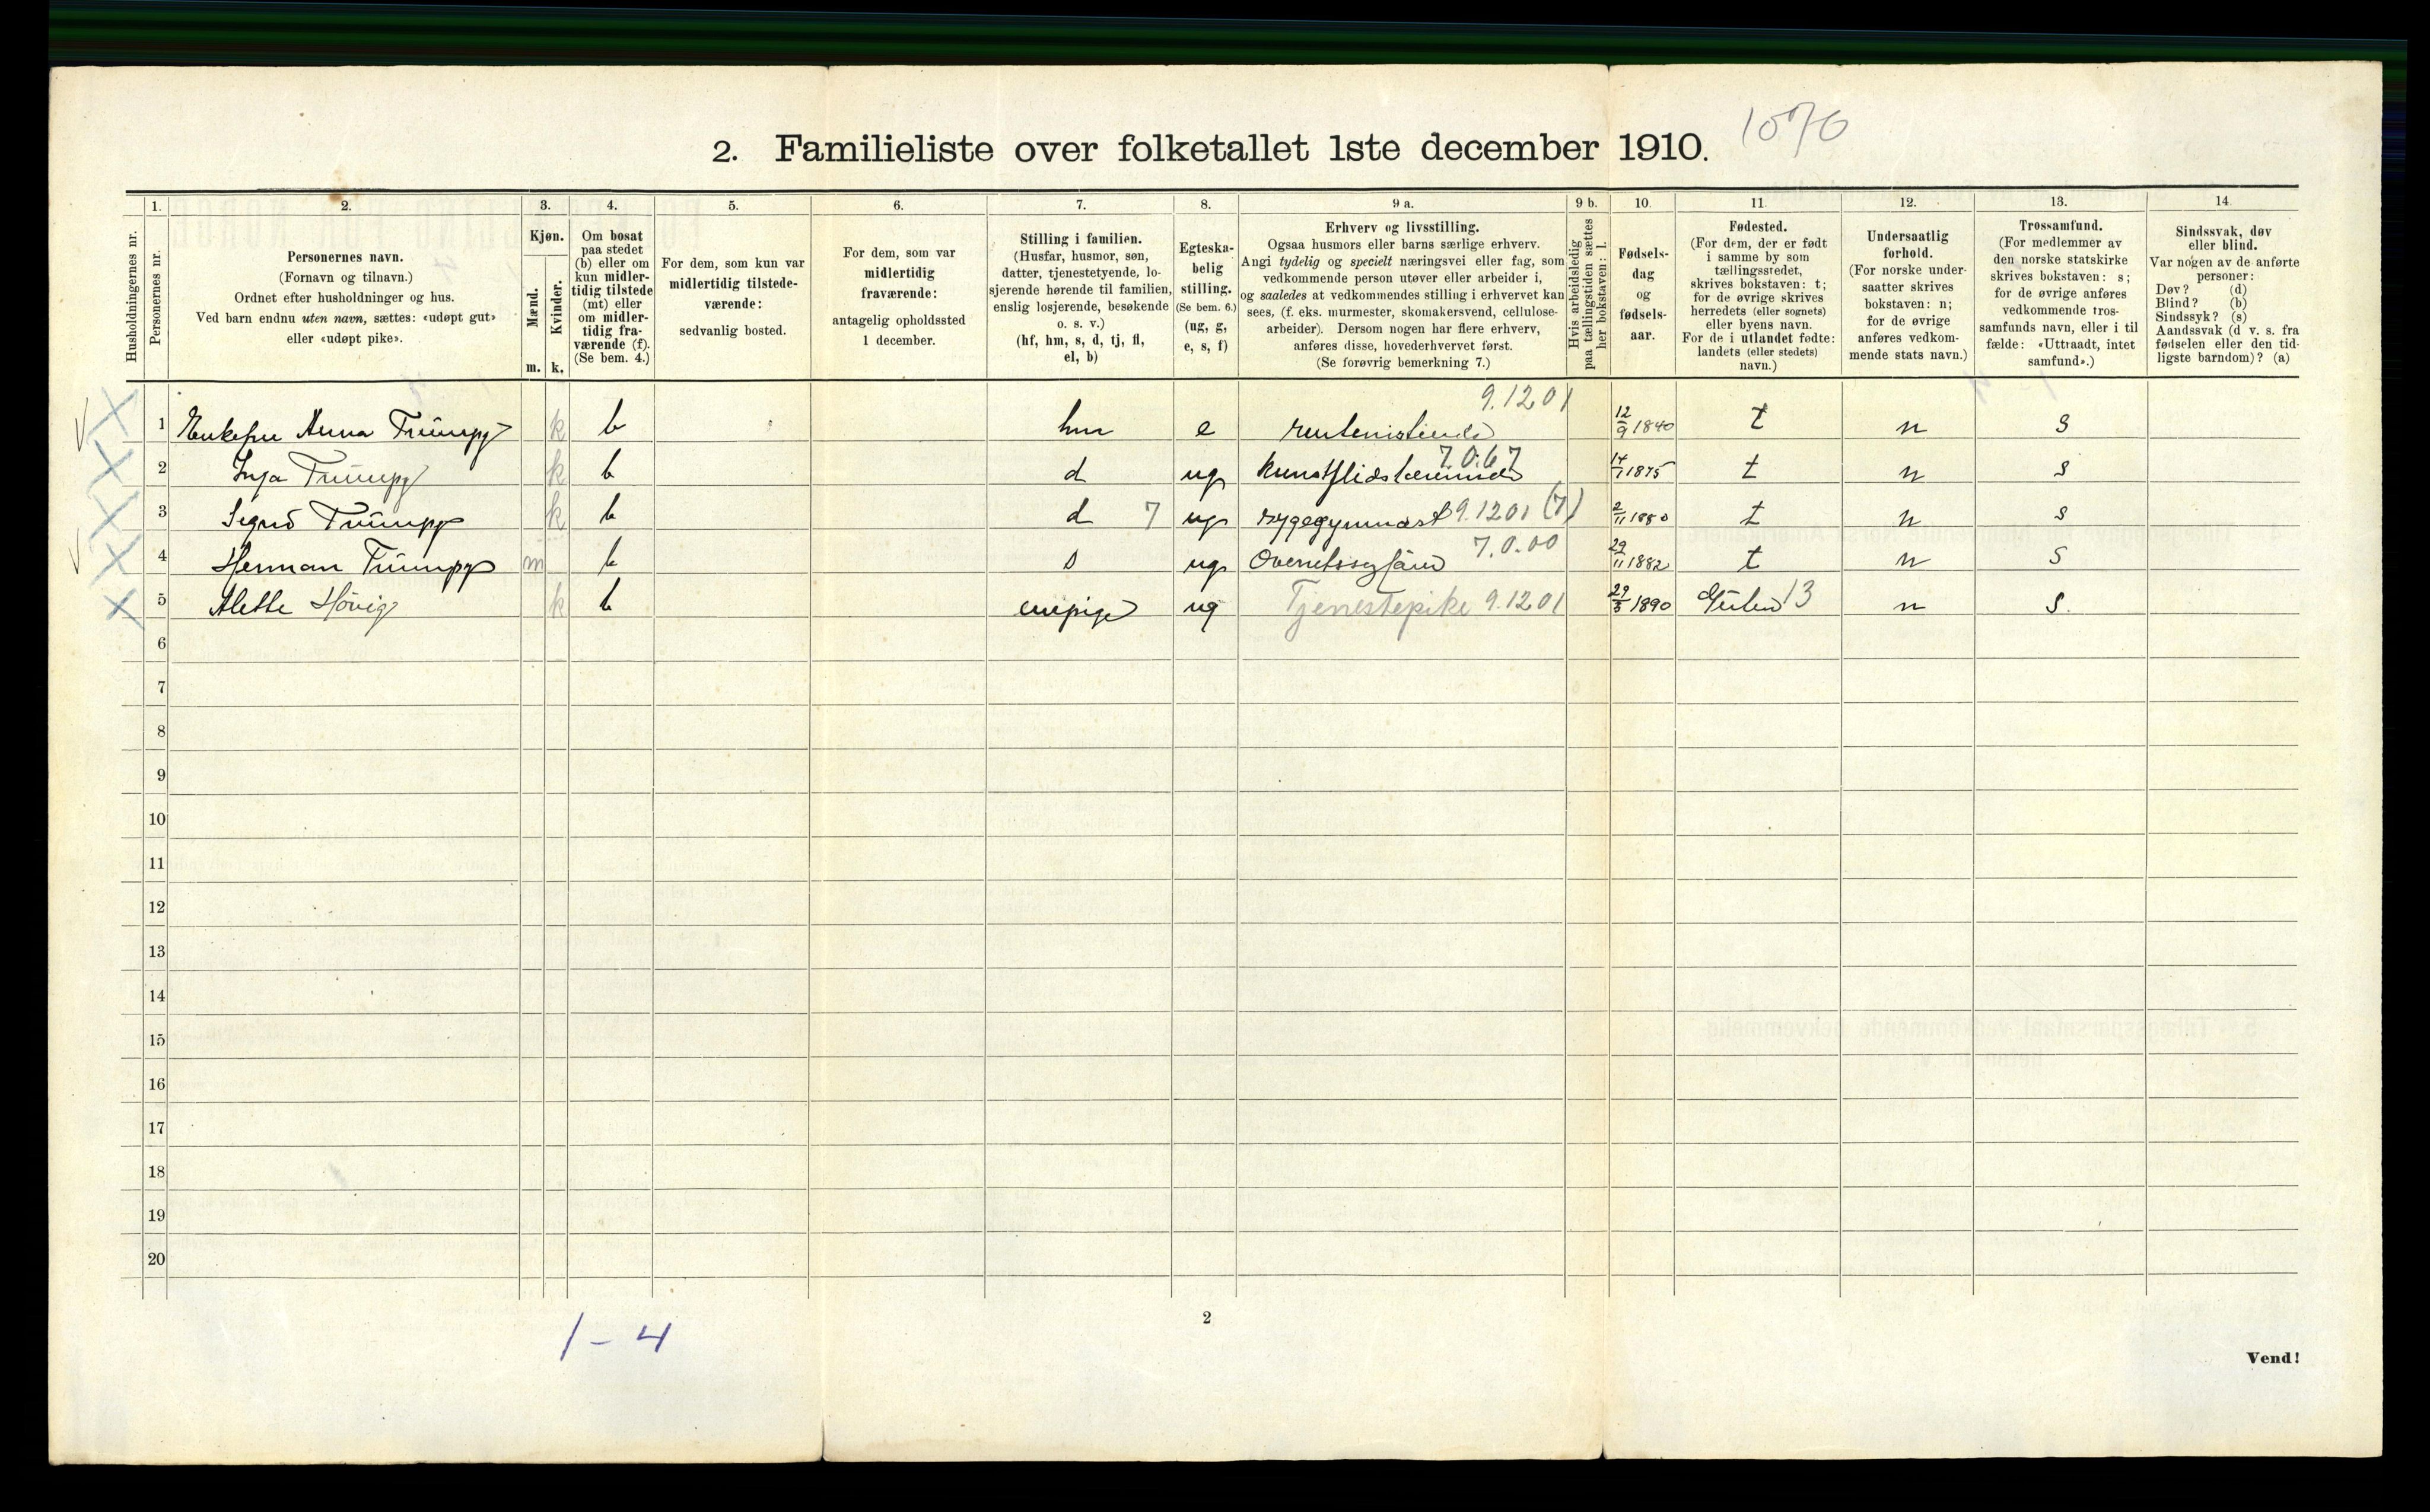 1070
2. Familieliste over folketallet 1ste december 1910.
1. 2. 3. 4. 5. 6. 7. 8. 9 a. 9 b. 10. 11. 12. 13. 14.
Husholdningernes nr.
Personernes nr.
Personernes navn.
(Fornavn og tilnavn.)
Ordnet efter husholdninger og hus.
Ved barn endnu uten navn, sættes: «udøpt gut»
eller «udøpt pike».
Kjøn.
Mænd.
Kvinder.
m. k.
Om bosat
paa stedet
(b) eller om
kun midler-
tidig tilstede
(mt) eller
om midler-
tidig fra-
værende (f).
(Se bem. 4.)
For dem, som kun var
midlertidig tilstede-
værende:
sedvanlig bosted.
For dem, som var
midlertidig
fraværende:
antagelig opholdssted
1 december.
Stilling i familien.
(Husfar, husmor, søn,
datter, tjenestetyende, lo-
sjerende hørende til familien,
enslig losjerende, besøkende
o. s. v.)
(hf, hm, s, d, tj, fl,
el, b)
Egteska-
belig
stilling.
(Se bem. 6.)
(ug, g,
e, s, f)
Erhverv og livsstilling.
Ogsaa husmors eller barns særlige erhverv.
Angi tydelig og specielt næringsvei eller fag, som
vedkommende person utøver eller arbeider i,
og saaledes at vedkommendes stilling i erhvervet kan
sees, (f. eks. murmester, skomakersvend, cellulose-
arbeider). Dersom nogen har flere erhverv,
anføres disse, hovederhvervet først.
(Se forøvrig bemerkning 7.)
Hvis arbeidsledig
paa tællingstiden sættes
her bokstaven: l.
Fødsels-
dag
og
fødsels-
aar.
Fødested.
(For dem, der er født
i samme by som
tællingsstedet,
skrives bokstaven: t;
for de øvrige skrives
herredets (eller sognets)
eller byens navn.
For de i utlandet fødte:
landets (eller stedets)
navn.)
Undersaatlig
forhold.
(For norske under-
saatter skrives
bokstaven: n;
for de øvrige
anføres vedkom-
mende stats navn.)
Trossamfund.
(For medlemmer av
den norske statskirke
skrives bokstaven: s;
for de øvrige anføres
vedkommende tros-
samfunds navn, eller i til
fælde: «Uttraadt, intet
samfund».)
Sindssvak, døv
eller blind.
Var nogen av de anførte
personer:
Døv? (d)
Blind? (b)
Sindssyk? (s)
Aandssvak (d v. s. fra
fødselen eller den tid-
ligste barndom)? (a)
9.1201
1 Enkefru Anna Trümpy k b hm e rentenistinde 12/9 1840 t n s
7.0.67
2 Inga Trümpy k b d ug kunstflidslærerinde 14/1 1875 t n s
3 Sigrid Trümpy k b d 7 ug sygegymnast 9.1201 (7) 2/11 1880 t n s
7.0.00
4 Herman Trümpy m b s ug Overretssagfører 29/11 1882 t n s
5 Alette Hövig k b enepige ug Tjenestepike 9.1201 29/3 1890 Gulen 13 n s.
6
7
8
9
10
11
12
13
14
15
16
17
18
19
20
1 - 4
2
Vend!